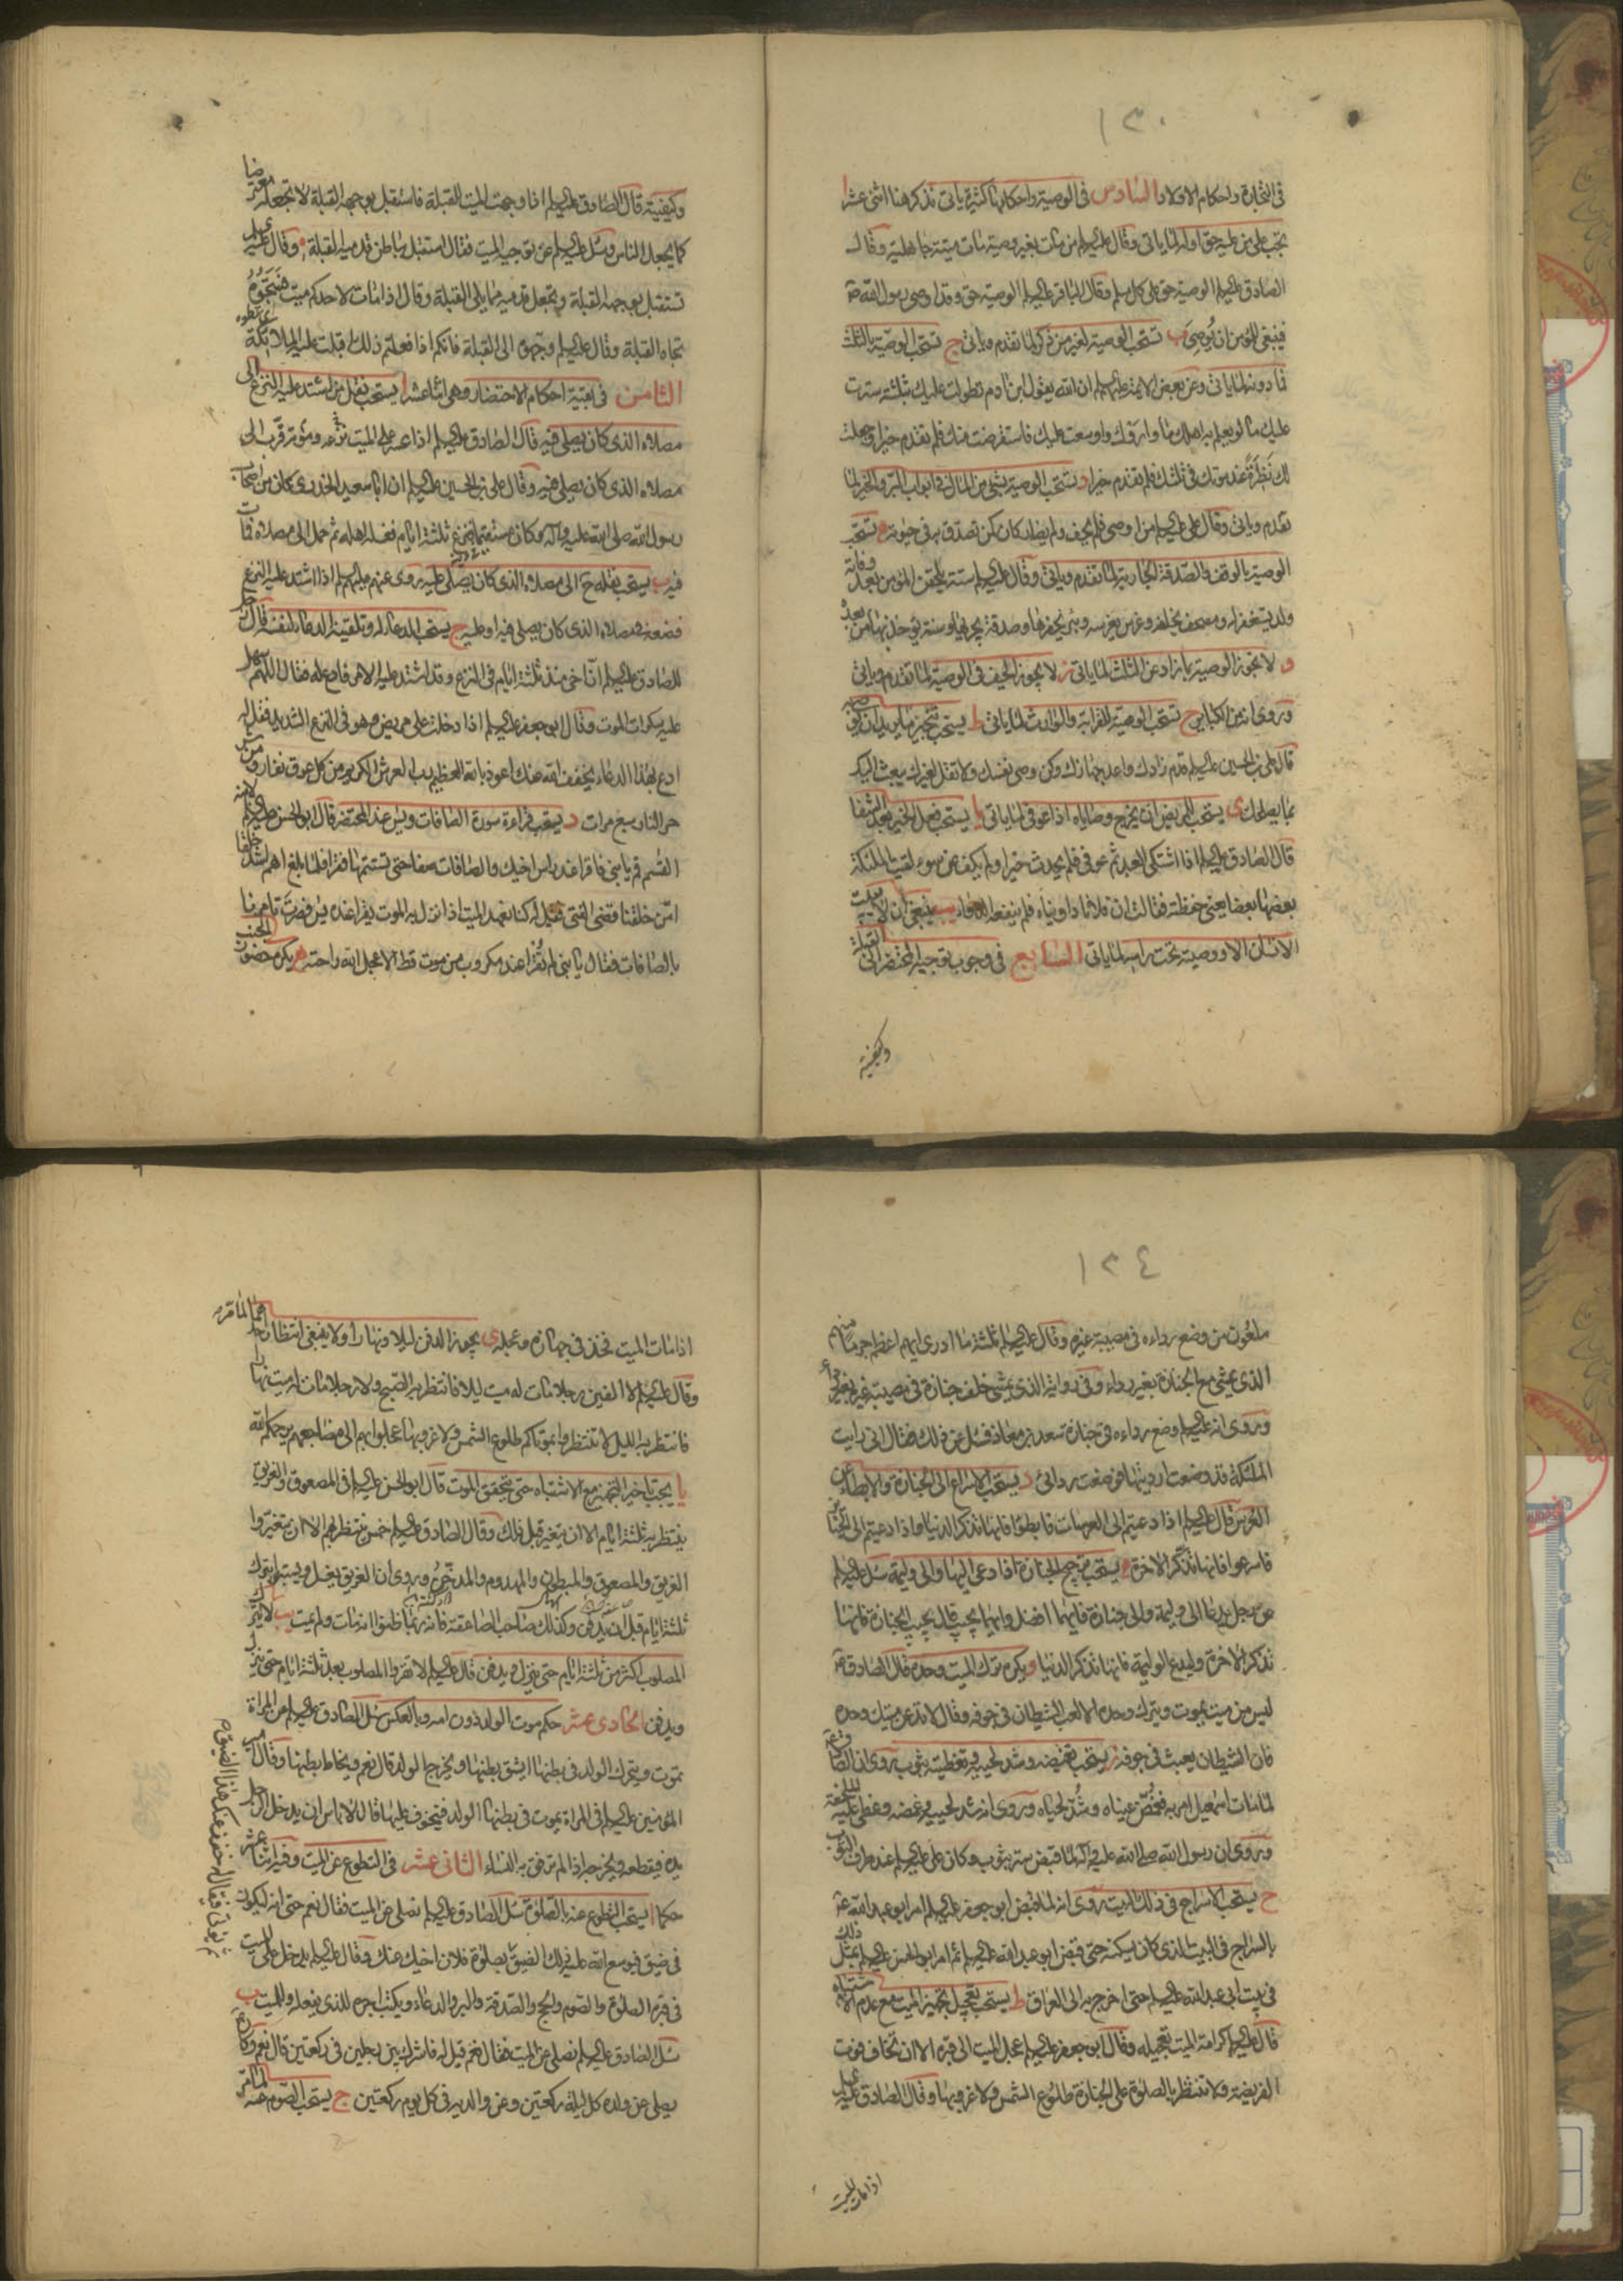 ١٣٠
فى التجارة واحكام الاولاد السادس فى الوصية واحكامها كثيرة ياتى نذكر هنا اثنى عشر ا
تجب على من عليه حق اوله لما ياتى وقال عليه السلم من مات بغير وصية مات ميتة جاهلية وقال
الصادق عليه السلم الوصية حق على كل مسلم وقال الباقر عليه السلم الوصية حق وقد اوصى رسول الله ص
فينبغى للمؤمن ان يوصى ب تستحب الوصية لغير من ذكر لما تقدم وياتى ج تستحب الوصية بالثلث
فما دونه لما ياتى وعن بعض الائمة عليهم السلم ان الله يقول ابن ادم تطولت عليك بثلثة سترت
عليك ما لو يعلم به اهلك ما واروك واوسعت عليك فاستقرضت منك فلم تقدم خيرا وجعلت
لك نظرة عند موتك فى ثلثك فلم تقدم خيرا د يستحب الوصية بشئ من المال فى ابواب البر والخير لما
تقدم وياتى وقال على عليه السلم من اوصى فلم يحف ولم يضار كان كمن تصدق به فى حيوته ه تستحب
الوصية بالوقف والصدقة الجارية لما تقدم وياتى وقال عليه السلم ستة يلحقن المؤمن بعد وفاته
ولد يستغفر له ومصحف يخلفه وغرس يغرسه وبئر يحفرها وصدقة يجريها وسنة يؤخذ بها من بعده
و لا تجوز الوصية بما زاد عن الثلث لما ياتى ز لا يجوز الحيف فى الوصية لما تقدم وياتى
وروى انه من الكبائر ح تستحب الوصية للقرابة والوارث لما ياتى ط يستحب تنجيز ما يريد ان يوصى به
قال على بن الحسين عليه السلم قدم زادك واعد جهازك وكن وصى نفسك ولا تقل لغيرك يبعث اليك
بما يصلحك ى يستحب للمريض ان يخرج وصاياه اذا عوفى لما ياتى يا يستحب فعل الخير بعد الشفا
قال الصادق عليه السلم اذا اشتكى العبد ثم عوفى فلم يحدث خيرا ولم يكف عن سوء لقيت الملئكة
بعضها بعضا يعنى حفظته فقالت ان فلانا داويناه فلم ينفعه الدواء يب ينبغى ان لا يبيت
الانسان الا ووصيته تحت راسه لما ياتى السابع فى وجوب توجيه المحتضر الى القبلة
وكيفيته
وكيفيته قال الصادق عليه السلم اذا وجهت الميت للقبلة فاستقبل بوجهه القبلة لا تجعله معترضا
كما يجعل الناس وسئل عليه السلم عن توجيه الميت فقال استقبل بباطن قدميه القبلة وقال عليه السلم
تستقبل بوجهه القبلة وتجعل قدميه مما يلى القبلة وقال اذا مات لاحدكم ميت فسجوه
تجاه القبلة وقال عليه السلم وجهوه الى القبلة فانكم اذا فعلتم ذلك اقبلت عليه الملائكة
الثامن فى بقية احكام الاحتضار وهى اثنا عشر ا يستحب نقل من اشتد عليه النزع الى
مصلاه الذى كان يصلى فيه قال الصادق عليه السلم اذا عسر على الميت موته ونزعه قرب الى
مصلاه الذى كان يصلى فيه وقال على بن الحسين عليه السلم ان ابا سعيد الخدرى كان من اصحاب
رسول الله صلى الله عليه واله وكان مستقيما فنزع ثلثة ايام فغسله اهله ثم حمل الى مصلاه فمات
فيه ب يستحب نقله ح الى مصلاه الذى كان يصلى عليه روى عنهم عليهم السلم اذا اشتد عليه النزع
فضعه فى مصلاه الذى كان يصلى فيه او عليه ج يستحب الدعاء له وتلقينه الدعاء لنفسه قال رجل
للصادق عليه السلم ان اخى منذ ثلثة ايام فى النزع وقد اشتد عليه الامر فادع له فقال اللهم سهل
عليه سكرات الموت وقال ابو جعفر عليه السلم اذا دخلت على مريض وهو فى النزع الشديد فقل له
ادع بهذا الدعاء يخفف الله عنك اعوذ بالله العظيم رب العرش الكريم من كل عرق نفار ومن شر
حر النار سبع مرات د يستحب قراءة سورة الصافات ويس عند المحتضر قال ابو الحسن عليه السلم لابنه
القسم قم يا بنى فاقرا عند راس اخيك والصافات صفا حتى تستتمها فقرا فلما بلغ اهم اشد خلقا
امن خلقنا قضى الفتى فقيل له كنا نعهد الميت اذا نزل به الموت يقرا عنده يس فصرت تامرنا
بالصافات فقال يا بنى لم تقرا عند مكروب من موت قط الا عجل الله راحته ه يكره حضور الجنب
١٣٤
ملعون من وضع رداءه فى مصيبة غيره وقال عليه السلم ثلثة ما ادرى ايهم اعظم جرما منهم
الذى يمشى مع الجنازة بغير رداء وفى رواية الذى يمشى خلف جنازة فى مصيبة غيره بغير رداء
وروى انه عليه السلم وضع رداءه فى جنازة سعد بن معاذ فسئل عن ذلك فقال انى رايت
الملئكة قد وضعت ارديتها فوضعت ردائى د يستحب الاسراع الى الجنازة والابطاء عن
العرس قال عليه السلم اذا دعيتم الى العرسات فابطؤا فانها تذكر الدنيا واذا دعيتم الى الجنائز
فاسرعوا فانها تذكر الاخرة ه يستحب ترجيح الجنازة اذا دعى اليها والى وليمة سئل عليه السلم
عن رجل يدعا الى وليمة والى جنازة فايهما افضل وايهما يجيب قال يجيب الجنازة فانها
تذكر الاخرة وليدع الوليمة فانها تذكر الدنيا و يكره ترك الميت وحده قال الصادق ع
ليس من ميت يموت ويترك وحده الا لعب الشيطان فى جوفه وقال لا تدعن ميتك وحده
فان الشيطان يعبث فى جوفه ز يستحب تغميضه وشد لحييه وتغطيته بثوب روى ان الصادق ع
لما مات اسمعيل امر به فغمض عيناه وشد لحياه وروى انه شد لحييه وغمضه وغطى عليه الملحفة
وروى ان رسول الله صلى الله عليه واله لما قبض ستر بثوب وكان على عليه السلم عند طرف الثوب
ح يستحب الاسراج فى ذلك البيت روى انه لما قبض ابو جعفر عليه السلم امر ابو عبد الله ع
بالسراج فى البيت الذى كان يسكنه حتى قبض ابو عبد الله عليه السلم ثم امر ابو الحسن عليه السلم بمثل ذلك
فى بيت ابى عبد الله عليه السلم حتى اخرج به الى العراق ط يستحب تعجيل تجهيز الميت مع عدم الاشتباه
قال عليه السلم كرامة الميت تعجيله وقال ابو جعفر عليه السلم عجل الميت الى قبره الا ان تخاف فوت
الفريضة ولا تنتظر بالصلوة على الجنازة طلوع الشمس ولا غروبها وقال الصادق عليه السلم
اذا مات الميت
اذا مات الميت فخذ فى جهازه وعجله ى يجوز الدفن ليلا ونهارا ولا ينبغى انتظار احدهما لما مر
وقال عليه السلم لا الفين رجلا مات له ميت ليلا فانتظر به الصبح ولا رجلا مات له ميت نهارا
فانتظر به الليل لا تنتظروا بموتاكم طلوع الشمس ولا غروبها عجلوا بهم الى مضاجعهم يرحمكم الله
يا يجب تاخير التجهيز مع الاشتباه حتى يتحقق الموت قال ابو الحسن عليه السلم فى المصعوق والغريق
ينتظر به ثلثة ايام الا ان يتغير قبل ذلك وقال الصادق عليه السلم خمس ينتظر بهم الا ان يتغيروا
الغريق والمصعوق والمبطون والمهدوم والمدخن وروى ان الغريق يغسل ويستبرأ يترك
ثلثة ايام قبل ان يدفن وكذلك صاحب الصاعقة فانه ربما ظنوا انه مات ولم يمت يب لا يترك
المصلوب اكثر من ثلثة ايام حتى ينزل ويدفن قال عليه السلم لا تقروا المصلوب بعد ثلثة ايام حتى ينزل
ويدفن الحادى عشر حكم موت الولد دون امه وبالعكس سئل الصادق عليه السلم عن المراة
تموت ويتحرك الولد فى بطنها ايشق بطنها ويخرج الولد قال نعم ويخاط بطنها وقال امير
المؤمنين عليه السلم فى المراة يموت فى بطنها الولد فيتخوف عليها قال لا باس ان يدخل الرجل
يده فيقطعه ويخرجه اذا لم ترفق به النساء الثانى عشر فى التطوع عن الميت وفيه اثنا عشر
حكما ا يستحب التطوع عنه بالصلوة سئل الصادق عليه السلم نصلى عن الميت فقال نعم حتى انه ليكون
فى ضيق فيوسع الله عليه ذلك الضيق بصلوة فلان اخيك عنك وقال عليه السلم يدخل على الميت
فى قبره الصلوة والصوم والحج والصدقة والبر والدعاء ويكتب اجره للذى يفعله وللميت ب
سئل الصادق عليه السلم نصلى عن الميت فقال نعم قيل له فاشرك بين رجلين فى ركعتين قال نعم وكان ع
يصلى عن ولده كل ليلة ركعتين وعن والديه فى كل يوم ركعتين ج يستحب الصوم عنه لما مر
ثم يؤتى فيقال له خفف عنك هذا الضيق